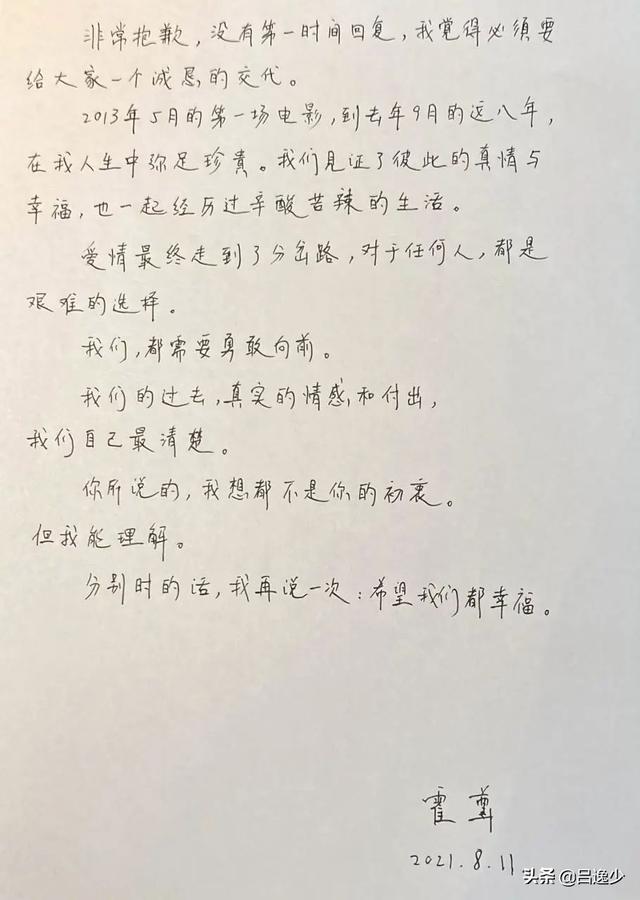 非常抱歉，没有第一时间回复，我觉得必须要
给大家一个诚恳的交代。
2013年5月的第一场电影，到去年9月的这八年，
在我人生中弥足珍贵。我们见证了彼此的真情与
幸福，也一起经历过辛酸苦辣的生活。
爱情最终走到了分岔路，对于任何人，都是
艰难的选择。
我们，都需要勇敢向前。
我们的过去，真实的情感和付出，
我们自己最清楚。
你所说的，我想都不是你的初衷。
但我能理解。
分别时的话，我再说一次：希望我们都幸福。
霍尊
2021.8.11
头条 @吕逸少